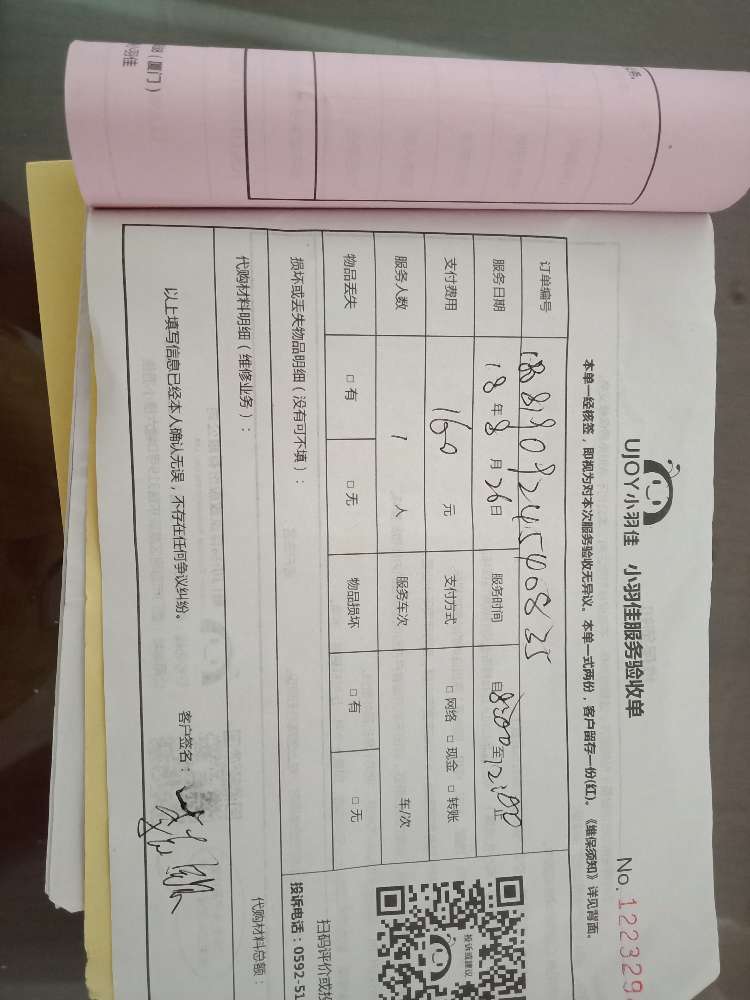 UJOY小羽佳 小羽佳服务验收单
No.122329
本单一经核签，即视为对本次服务验收无异议。本单一式两份，客户留存一份(红)。《维保须知》详见背面。
订单编号
服务日期 18 年 8 月 26 日 服务时间 自 8:00 至 12:00 止
支付费用 160 元 支付方式 □ 网络 □ 现金 □ 转账
服务人数 1 人 服务车次 车/次
物品丢失 □ 有 □ 无 物品损坏 □ 有 □ 无
损坏或丢失物品明细（没有可不填）：
代购材料明细（维修业务）：
代购材料总额：
以上填写信息已经本人确认无误，不存在任何争议纠纷。
客户签名：
投诉或建议
扫码评价或投
投诉电话：0592-51
（厦门）
小羽佳